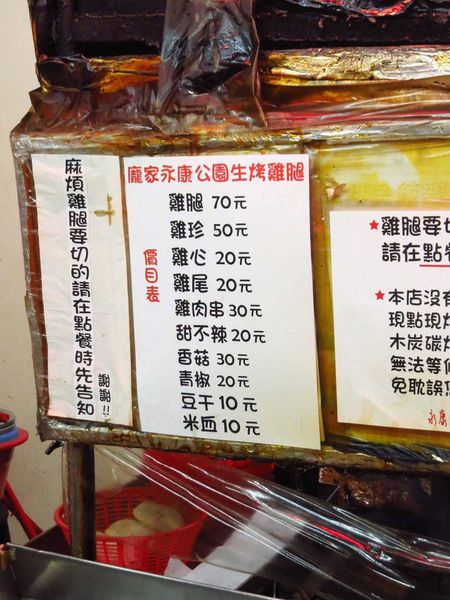 麻煩雞腿要切的請在點餐時先告知
謝謝!!
龐家永康公園生烤雞腿
價目表
雞腿 70元
雞珍 50元
雞心 20元
雞尾 20元
雞肉串 30元
甜不辣 20元
香菇 30元
青椒 20元
豆干 10元
米血 10元
★雞腿要切
請在點餐
★本店沒有
現點現烤
木炭碳烤
無法等候
免耽誤
永康